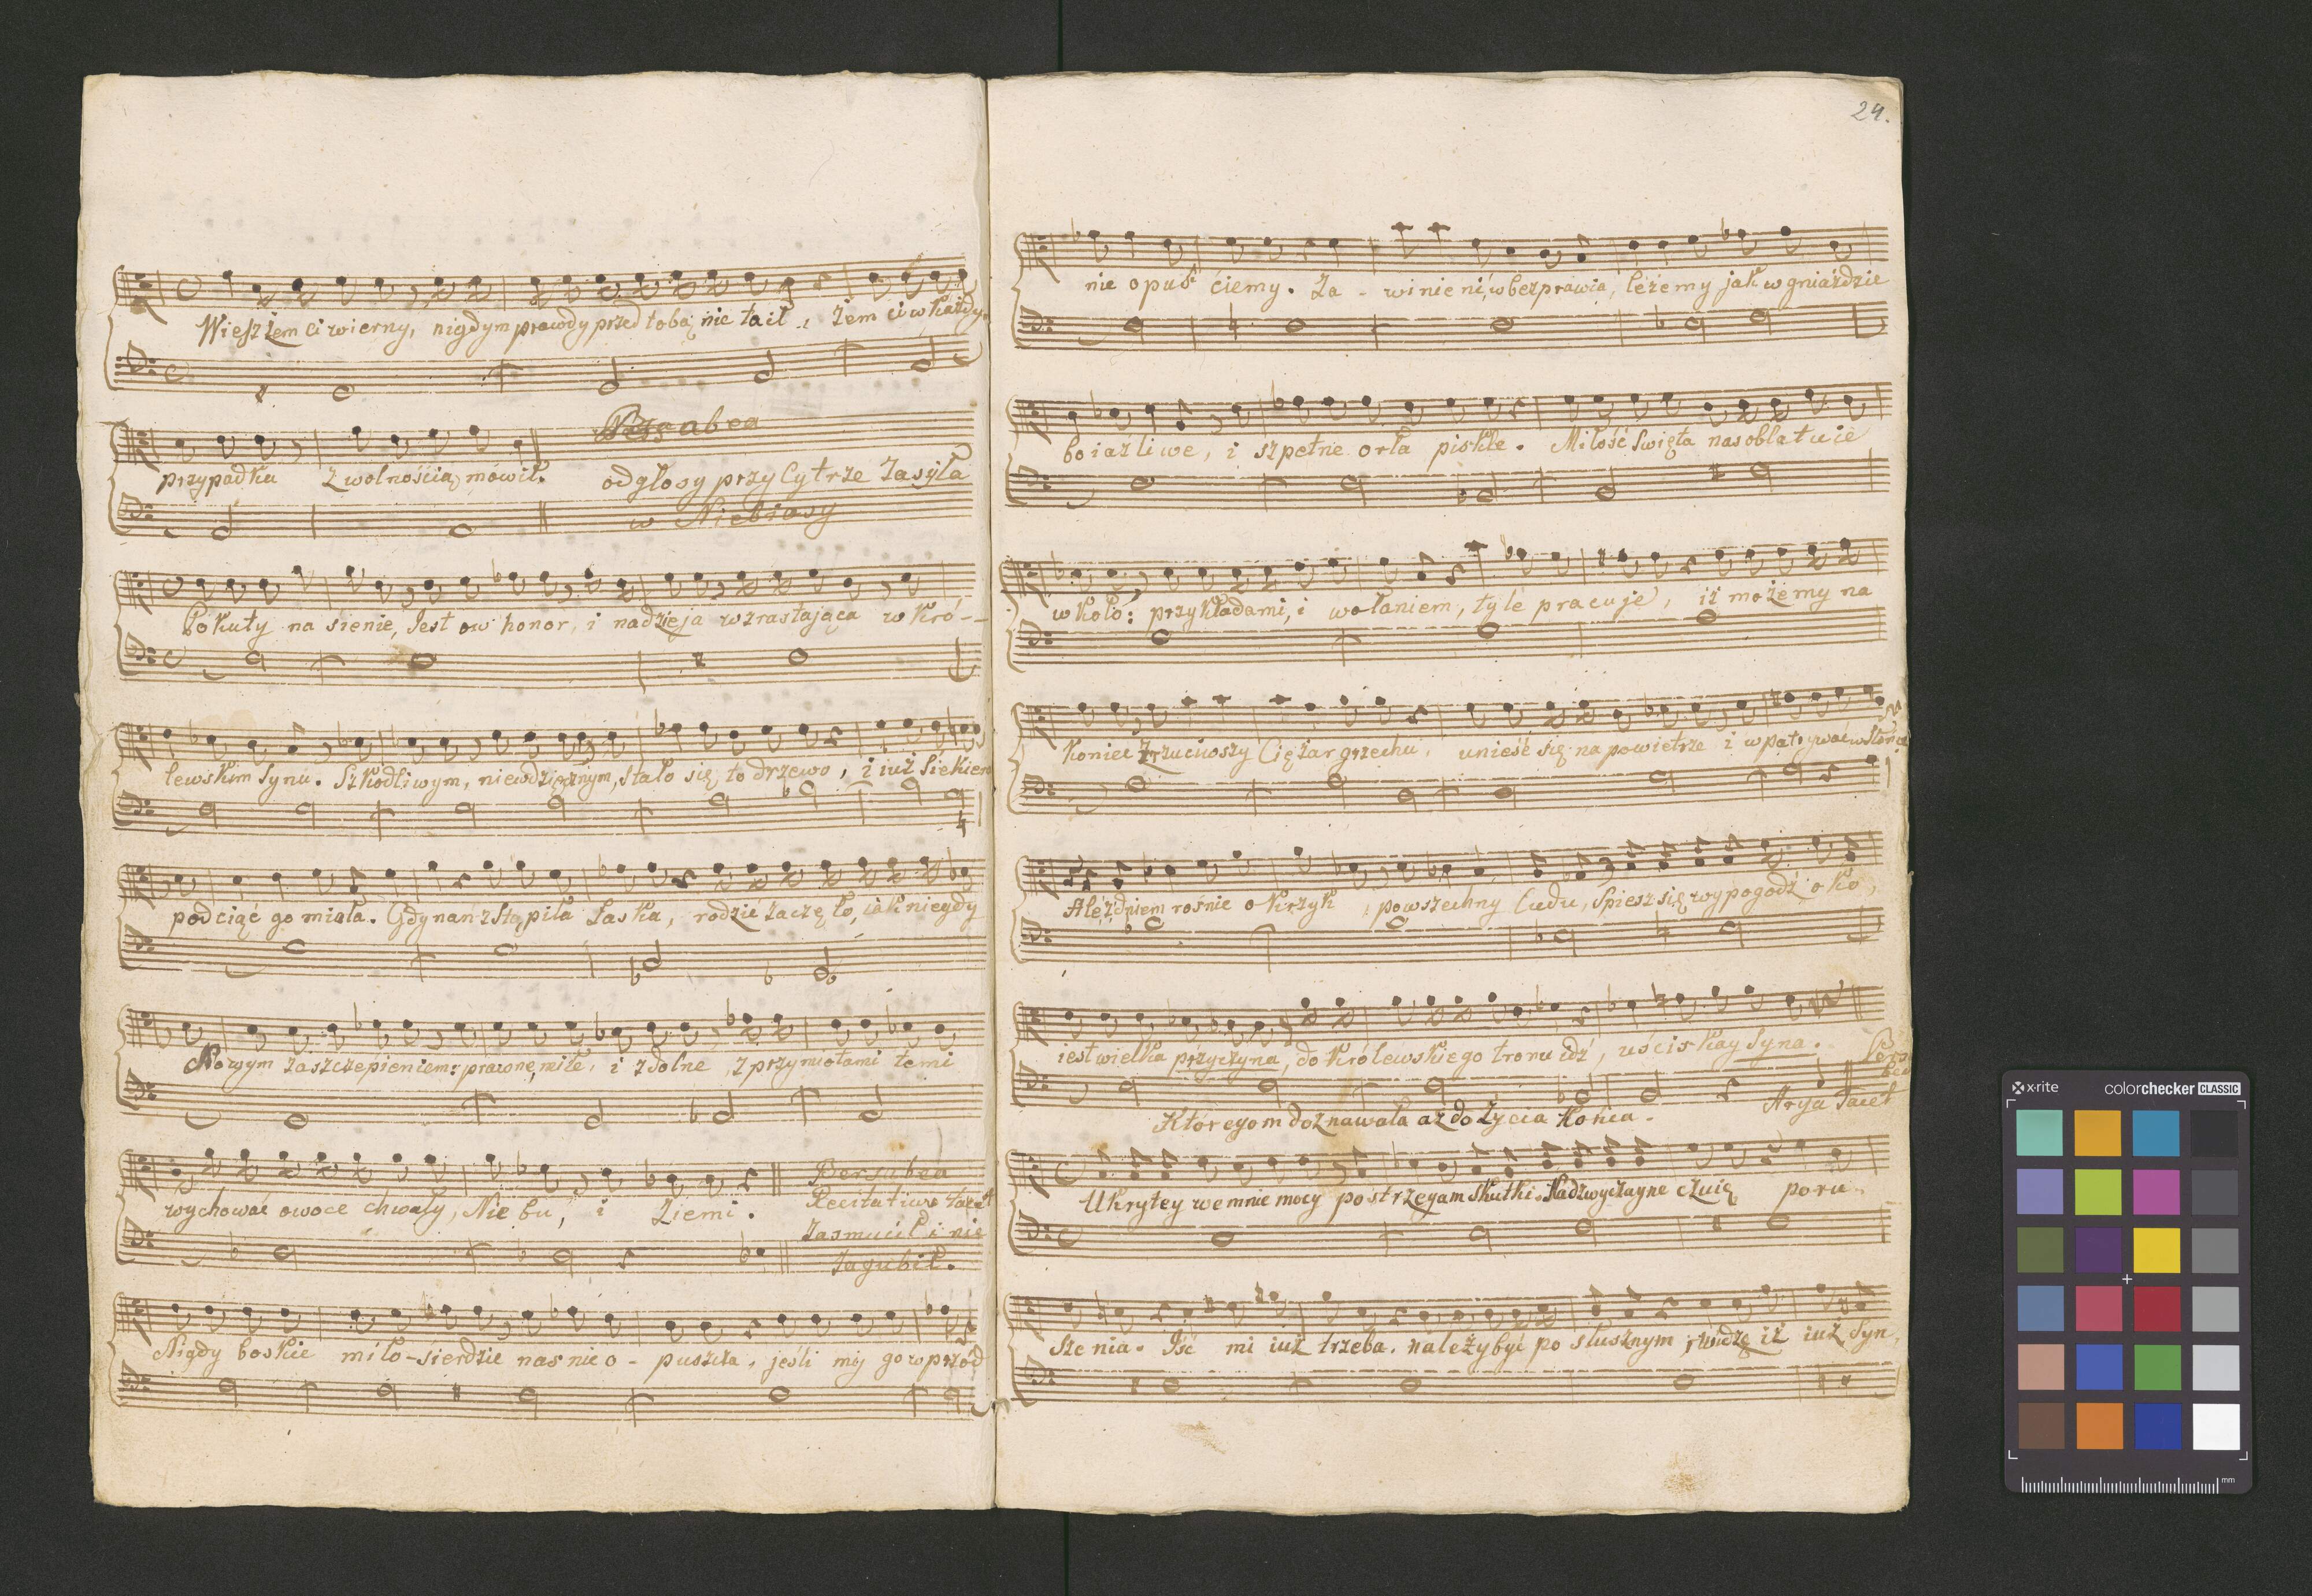 Wiesz żem ci wierny, nigdym prawdy przed tobą nie taił, żem ci w każdy
przypadku z wolnością mówił.
Bersabea
odgłosy przy Cytrze Zasyła
w Niebiosy
Pokuty na sienie, Jest ow honor, i nadzieja wzrastająca w Kró-
lewskim Synu. Szkodliwym, niewdzięcznym, stało się to drzewo, i iuż Siekier
podciąć go miała. Gdy nań zstąpiła Łaska, rodzić zaczęło, iak niegdy
Nowym zaszczepieniem: prawne, miłe, i zdolne z przymiotami temi
wychować owoce chwały, Nie bu, i Ziemi.
Bersabea
Recitativo tacet
Zasmucił i nie
zagubił.
Nigdy boskie miło-sierdzie nas nie o-puszcza, jeśli my go wprzód
24.
nie opuś ciemy. Za-winie ni, w bezprawia, leżemy jak w gniaździe
boiaźliwe, i szpetne orła pisklę. Miłość Swięta nas oblatuie
w koło: przykładami, i wołaniem, tyle pracuje, iż możemy na
koniec Zrzuciwszy Ciężar grzechu, unieść się na powietrze i wpatrywać w słońce
Ale z dniem rośnie okrzyk, powszechny Ludu, Spiesz się wypogodź oko,
iest wielka przyczyna, do Królewskiego tronu idź, uściskay Syna.
Bersa
bea
Arya Tacet
Któregom doznawała aż do życia końca.
Ukrytey we mnie mocy postrzegam Skutki. Nadzwyczayne czuię poru-
sze nia. Iść mi iuż trzeba, należy być po słusznym, widzę iż iuż Syn,